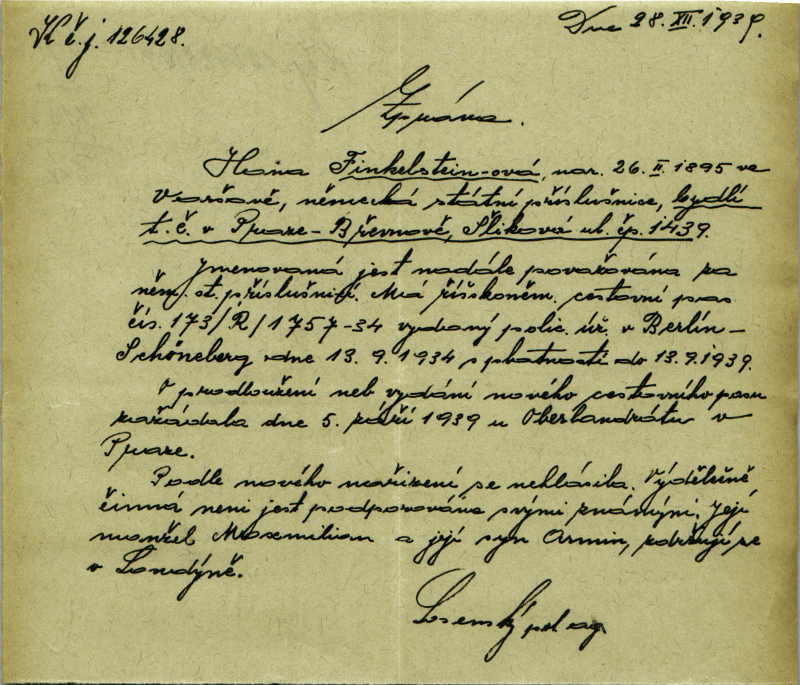 K č.j. 126428.
Dne 28. XII. 1939.
Zpráva.
Hana Finkelstein-ová, nar. 26. II. 1895 ve
Varšavě, německá státní příslušnice, bydlí
t. č. v Praze-Břevnově, Šlikova ul. čp. 1439.
Jmenovaná jest nadále považována za
něm. st. příslušnici. Má říškoněm. cestovní pas
čís. 173/R/1757-34 vydaný polic. úř. v Berlín-
Schöneberg dne 13. 9. 1934 s platností do 13. 9. 1939.
O prodloužení neb vydání nového cestovního pasu
zažádala dne 5. září 1939 u Oberlandrátu v
Praze.
Podle nového nařízení se nehlásila. Výdělečně
činná není jest podporována svými známými. Její
manžel Maxmilian a její syn Armin, zdržují se
v Londýně.